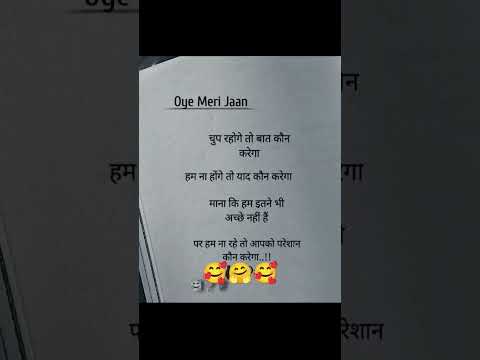 Oye Meri Jaan
Oye Meri Jaan
चुप रहोगे तो बात कौन
करेगा
हम ना होंगे तो याद कौन करेगा
माना कि हम इतने भी
अच्छे नहीं हैं
पर हम ना रहे तो आपको परेशान
कौन करेगा..!!